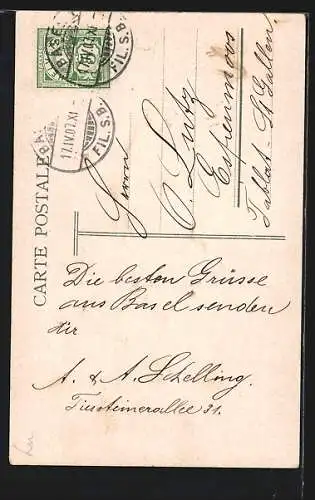 CARTE POSTALE
BASEL
17.IV.07.XI
FIL. S. B.
BASEL
17.IV.07.XI
FIL. S. B.
Herrn
O. Lutz
Espenmoos
Tablat - St. Gallen.
Die besten Grüsse
aus Basel senden
dir
A. & A. Schelling.
Tiersteinerallee 31.